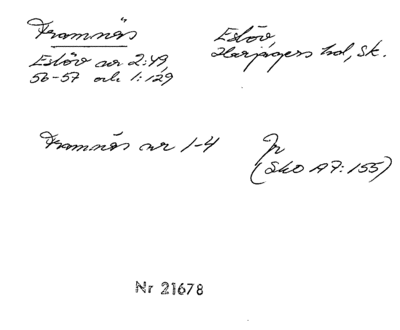 Framnäs
Eslöv nr 2:49,
56-57 och 1:129
Eslöv,
Harjagers hd, Sk.
Framnäs nr 1-4
Jr
(SkO A7: 155)
Nr 21678